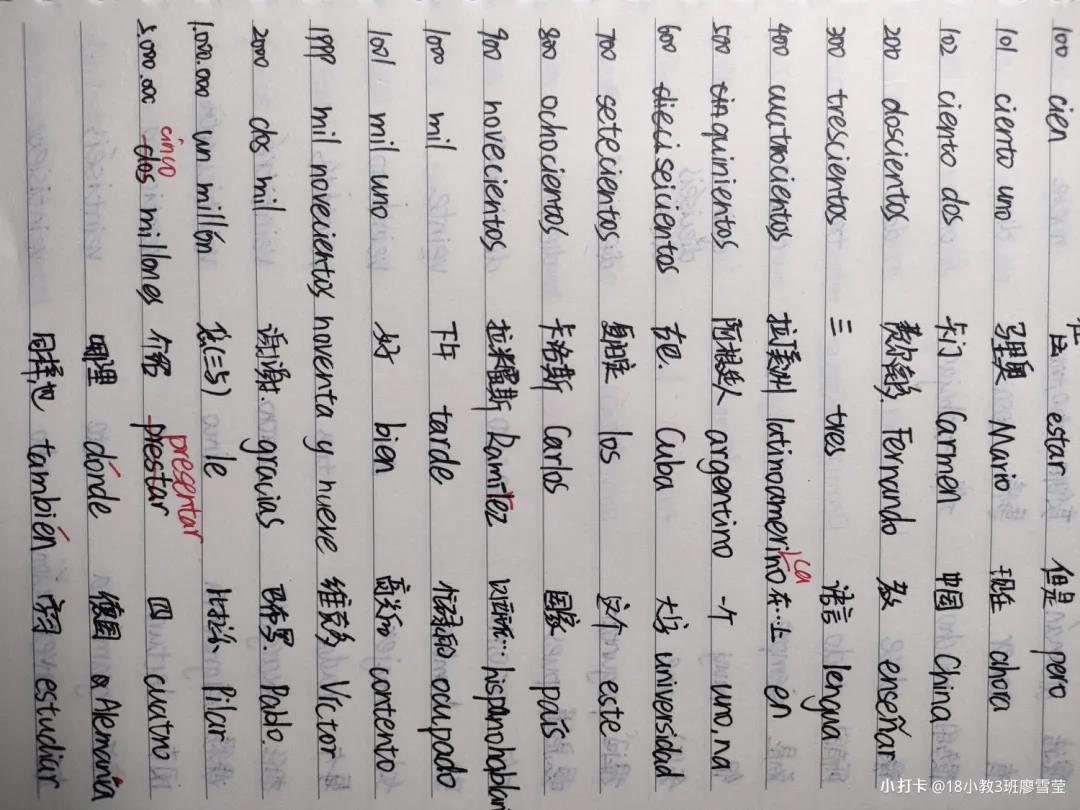 100 cien 在 estar 但是 pero
101 ciento uno 马里奥 Mario 现在 ahora
102 ciento dos 卡门 Carmen 中国 China
200 doscientos 费尔南多 Fernando 教 enseñar
300 trescientos 三 tres 语言 lengua
400 cuatrocientos 拉丁美洲 latinoamerino ca 在…上 en
500 cin quinientos 阿根廷人 argentino 一个 uno, na
600 dieci seicientos 古巴. Cuba 大学 universidad
700 setecientos los 这个 este
800 ochocientos 卡洛斯 Carlos 国家 país
900 novecientos 拉米雷斯 Ramírez hispanohablan
1000 mil 下午 tarde 忙碌的 ocupado
1001 mil uno 好 bien 高兴的 contento
1999 mil novecientos noventa y nueve 维克多 Víctor
2000 dos mil 谢谢. gracias 巴勃罗. Pablo.
1.000.000 un millón 比拉尔 Pilar
5.000.000 dos cinco millones 介绍 prestar presentar 四 cuatro
哪里 dónde 德国 Alemania
同样地 también 学习 estudiar
小打卡 @18小教3班廖雪莹